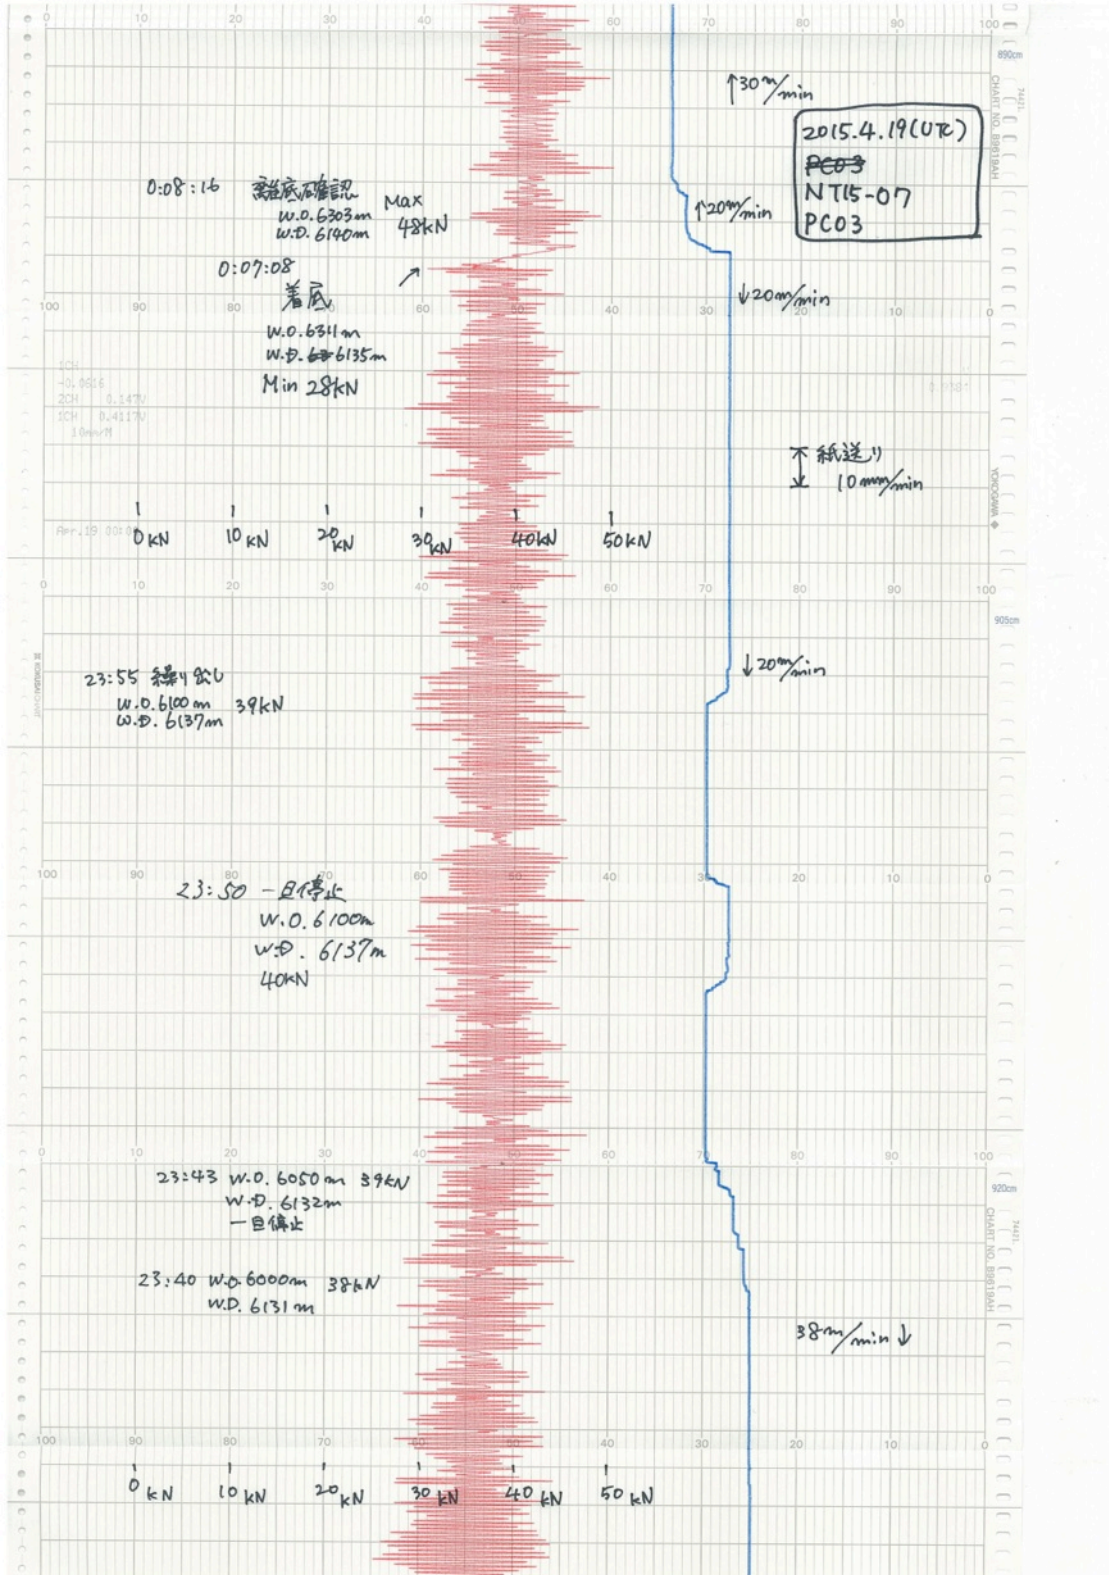 0 10 20 30 40 50 60 70 80 90 100
890cm
74471-
CHART NO. B9619AH
↑30m/min
2015.4.19(UTC)
PC03
NT15-07
PC03
0:08:16 離底確認
W.O.6303m
W.D.6140m
Max
48kN
↑20m/min
0:07:08
着底
W.O.6311m
W.D.6135m
Min 28kN
↓20m/min
100 90 80 70 60 50 40 30 20 10 0
1CH
-0.0616
2CH 0.147V
1CH 0.4117V
10mm/M
紙送り
10mm/min
YOKOGAWA
Apr.19 00:0
0kN 10kN 20kN 30kN 40kN 50kN
0 10 20 30 40 50 60 70 80 90 100
905cm
↓20m/min
23:55 繰り出し
W.O.6100m 39kN
W.D.6137m
100 90 80 70 60 50 40 30 20 10 0
23:50 一旦停止
W.O.6100m
W.D.6137m
40kN
0 10 20 30 40 50 60 70 80 90 100
920cm
74471-
CHART NO. B9619AH
23:43 W.O.6050m 39kN
W.D.6132m
一旦停止
23:40 W.O.6000m 38kN
W.D.6131m
38m/min↓
100 90 80 70 60 50 40 30 20 10 0
0kN 10kN 20kN 30kN 40kN 50kN